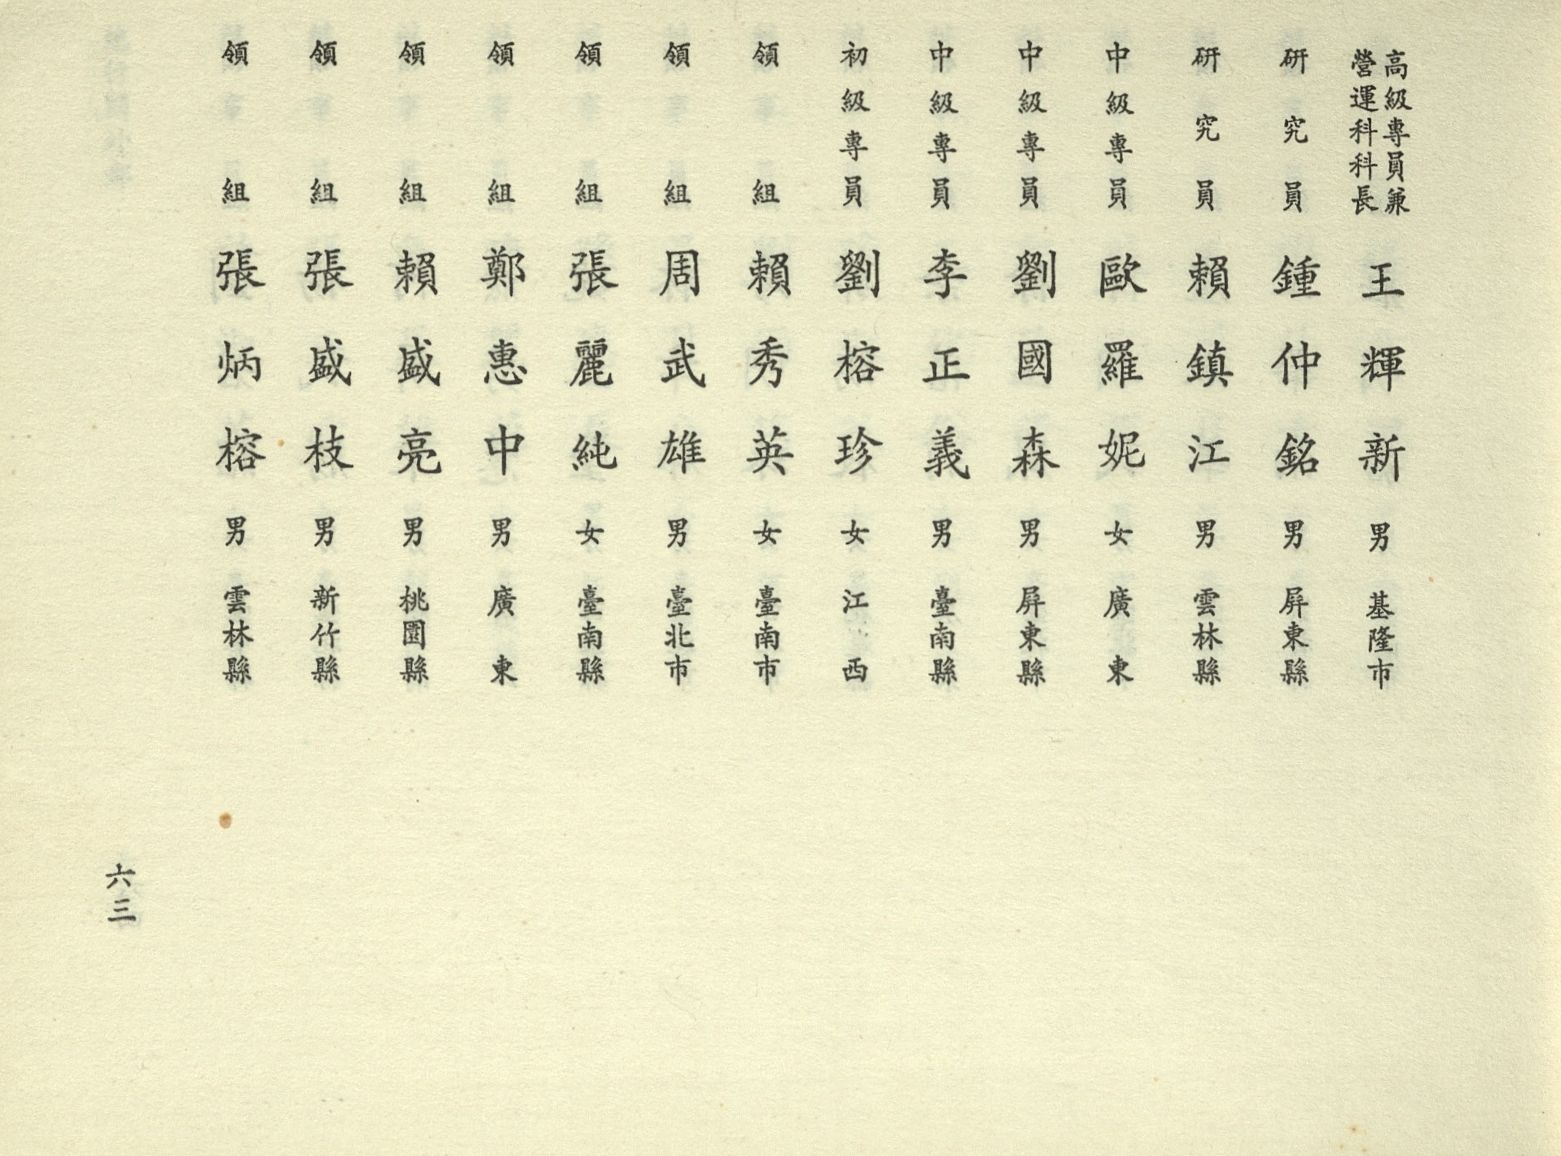 高級專員兼營運科科長 王輝新 男 基隆市
研究員 鍾仲銘 男 屏東縣
研究員 賴鎮江 男 雲林縣
中級專員 歐羅妮 女 廣東
中級專員 劉國森 男 屏東縣
中級專員 李正義 男 臺南縣
初級專員 劉榕珍 女 江西
領組 賴秀英 女 臺南市
領組 周武雄 男 臺北市
領組 張麗純 女 臺南縣
領組 鄭惠中 男 廣東
領組 賴盛亮 男 桃園縣
領組 張盛枝 男 新竹縣
領組 張炳榕 男 雲林縣
六三